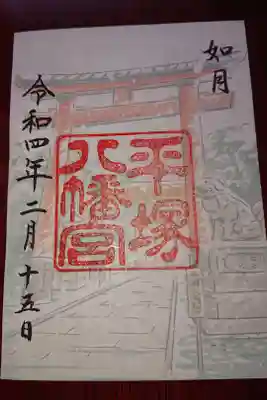 如月
平塚
八幡宮
令和四年二月十五日